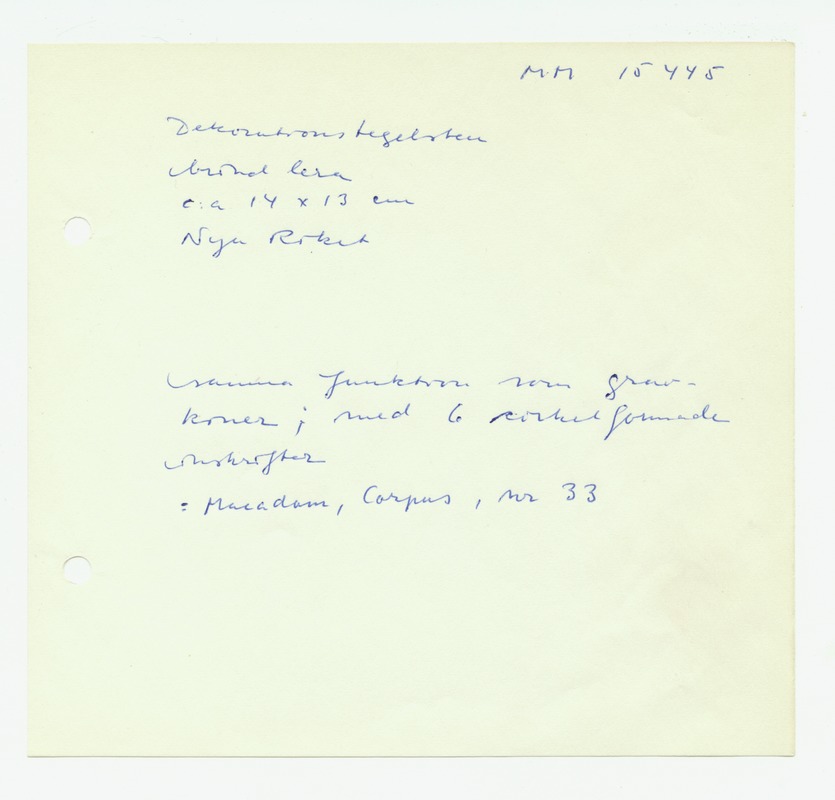 MM 15445
Dekorationstegelsten
bränd lera
c:a 14 x 13 cm
Nya Riket
samma funktion som grav-
koner; med 6 cirkelformade
inskrifter
= Macadam, Corpus, nr 33